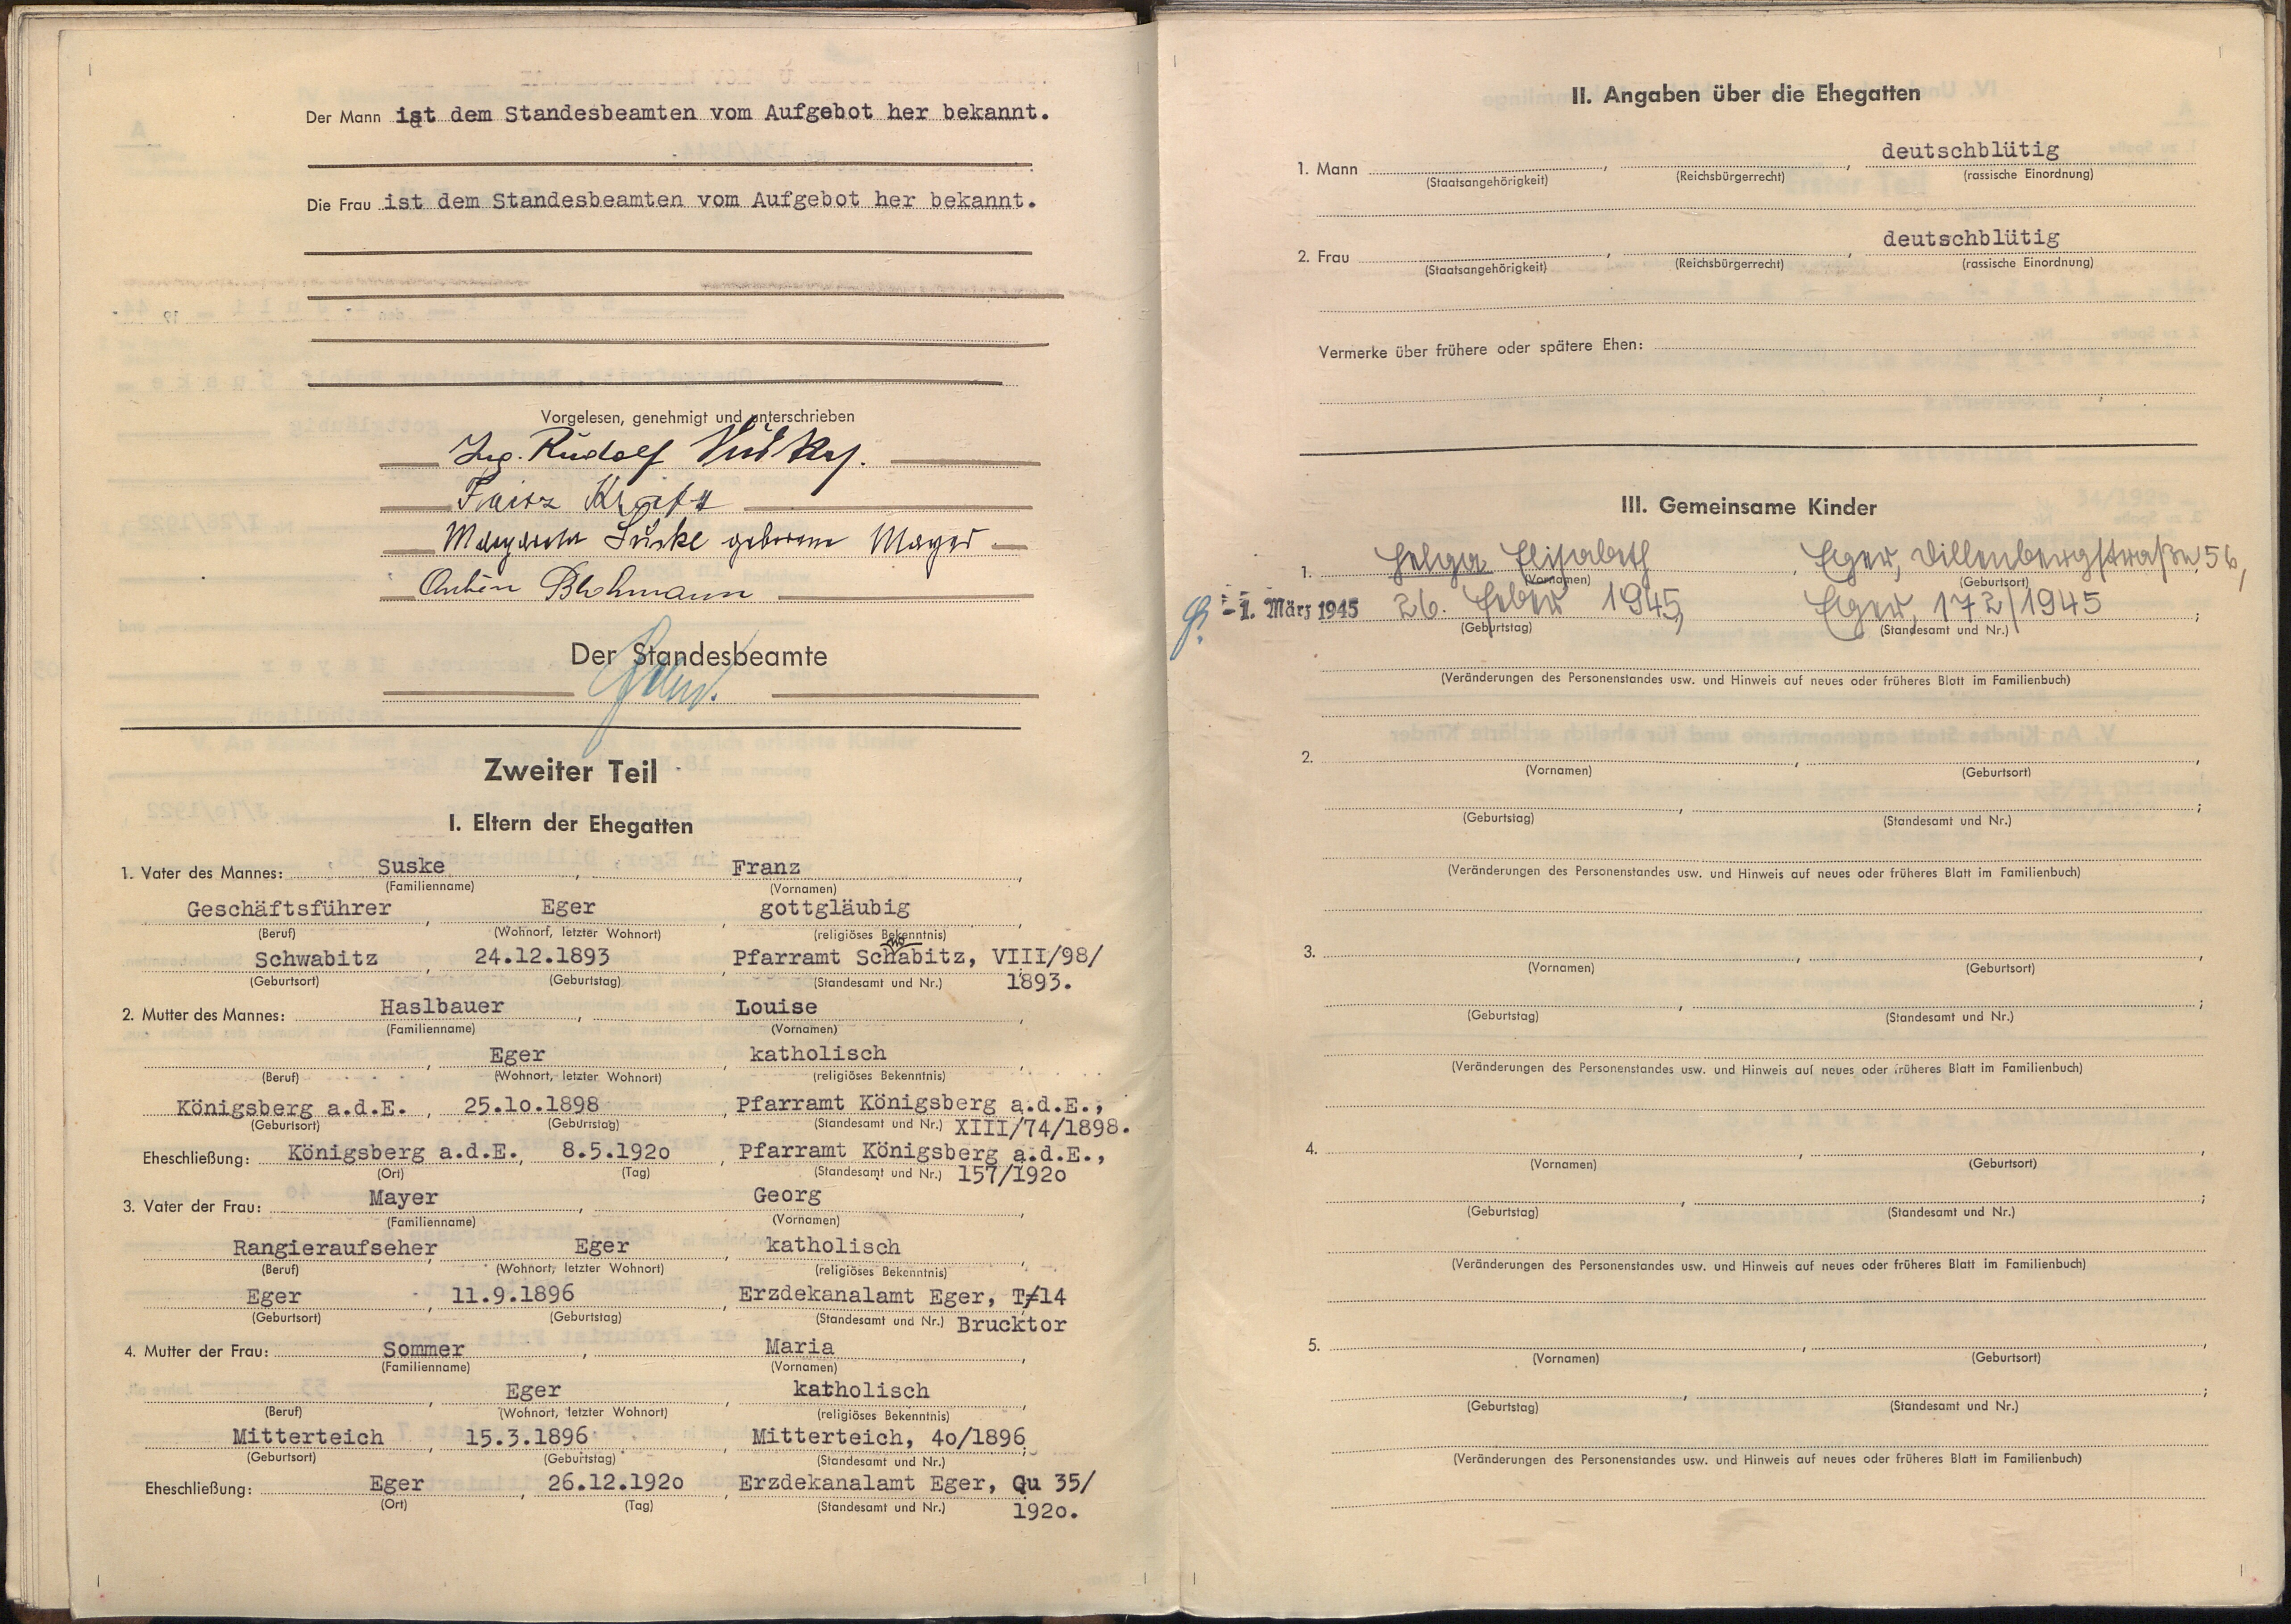 Der Mann ist dem Standesbeamten vom Aufgebot her bekannt.
Die Frau ist dem Standesbeamten vom Aufgebot her bekannt.
Vorgelesen, genehmigt und unterschrieben
Ing. Rudolf Suske.
Franz Kraft
Margarete Suske geborene Mayer
Anton Blohmann
Der Standesbeamte
Zweiter Teil
I. Eltern der Ehegatten
1. Vater des Mannes: Suske, Franz,
(Familienname) (Vornamen)
Geschäftsführer, Eger, gottgläubig,
(Beruf) (Wohnort, letzter Wohnort) (religiöses Bekenntnis)
Schwabitz, 24.12.1893, Pfarramt Schabitz, VIII/98/
(Geburtsort) (Geburtstag) (Standesamt und Nr.) 1893.
2. Mutter des Mannes: Haslbauer, Louise,
(Familienname) (Vornamen)
, Eger, katholisch,
(Beruf) (Wohnort, letzter Wohnort) (religiöses Bekenntnis)
Königsberg a.d.E., 25.1o.1898, Pfarramt Königsberg a.d.E.,
(Geburtsort) (Geburtstag) (Standesamt und Nr.) XIII/74/1898.
Eheschließung: Königsberg a.d.E., 8.5.192o, Pfarramt Königsberg a.d.E.,
(Ort) (Tag) (Standesamt und Nr.) 157/192o
3. Vater der Frau: Mayer, Georg,
(Familienname) (Vornamen)
Rangieraufseher, Eger, katholisch,
(Beruf) (Wohnort, letzter Wohnort) (religiöses Bekenntnis)
Eger, 11.9.1896, Erzdekanalamt Eger, T≠14
(Geburtsort) (Geburtstag) (Standesamt und Nr.) Brucktor
4. Mutter der Frau: Sommer, Maria,
(Familienname) (Vornamen)
, Eger, katholisch,
(Beruf) (Wohnort, letzter Wohnort) (religiöses Bekenntnis)
Mitterteich, 15.3.1896, Mitterteich, 4o/1896;
(Geburtsort) (Geburtstag) (Standesamt und Nr.)
Eheschließung: Eger, 26.12.192o, Erzdekanalamt Eger, Qu 35/
(Ort) (Tag) (Standesamt und Nr.) 192o.
II. Angaben über die Ehegatten
1. Mann , , deutschblütig
(Staatsangehörigkeit) (Reichsbürgerrecht) (rassische Einordnung)
2. Frau , , deutschblütig
(Staatsangehörigkeit) (Reichsbürgerrecht) (rassische Einordnung)
Vermerke über frühere oder spätere Ehen:
III. Gemeinsame Kinder
1. Helga Elisabeth, Eger, Dillenbergstraße 56,
(Vornamen) (Geburtsort)
-1. März 1945 26. Feber 1945, Eger, 172/1945;
(Geburtstag) (Standesamt und Nr.)
(Veränderungen des Personenstandes usw. und Hinweis auf neues oder früheres Blatt im Familienbuch)
2. , ,
(Vornamen) (Geburtsort)
, ;
(Geburtstag) (Standesamt und Nr.)
(Veränderungen des Personenstandes usw. und Hinweis auf neues oder früheres Blatt im Familienbuch)
3. , ,
(Vornamen) (Geburtsort)
, ;
(Geburtstag) (Standesamt und Nr.)
(Veränderungen des Personenstandes usw. und Hinweis auf neues oder früheres Blatt im Familienbuch)
4. , ,
(Vornamen) (Geburtsort)
, ;
(Geburtstag) (Standesamt und Nr.)
(Veränderungen des Personenstandes usw. und Hinweis auf neues oder früheres Blatt im Familienbuch)
5. , ,
(Vornamen) (Geburtsort)
, ;
(Geburtstag) (Standesamt und Nr.)
(Veränderungen des Personenstandes usw. und Hinweis auf neues oder früheres Blatt im Familienbuch)